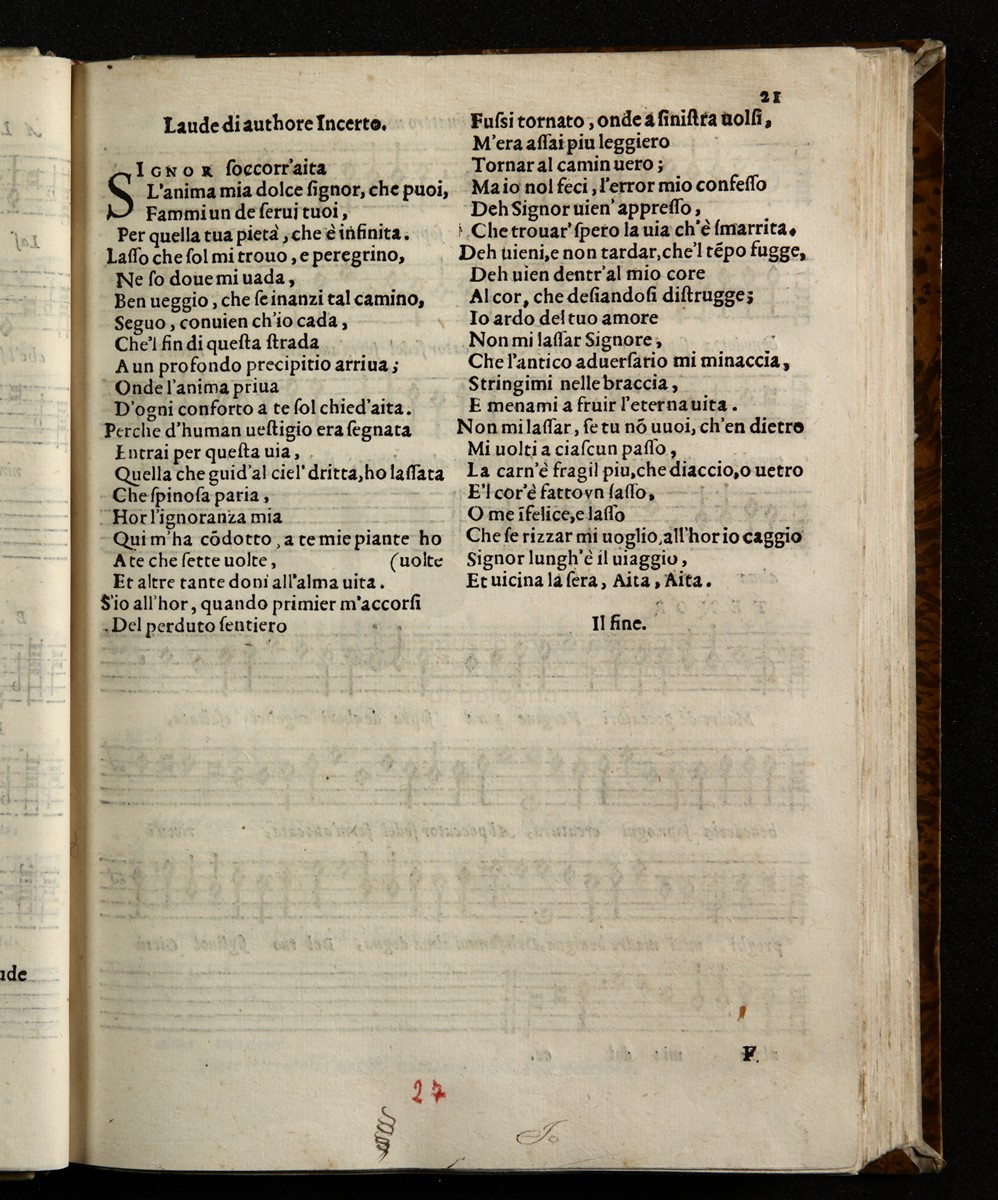 21
Laude di authore Incerto.
SIGNOR ſoccorr'aita
L'anima mia dolce ſignor, che puoi,
Fammi un de ſerui tuoi,
Per quella tua pietà, che è infinita.
Laſſo che ſol mi trouo, e peregrino,
Ne ſo doue mi uada,
Ben ueggio, che ſe inanzi tal camino,
Seguo, conuien ch'io cada,
Che'l fin di queſta ſtrada
A un profondo precipitio arriua;
Onde l'anima priua
D'ogni conforto a te ſol chied'aita.
Perche d'human ueſtigio era ſegnata
Entrai per queſta uia,
Quella che guid'al ciel' dritta, ho laſſata
Che ſpinoſa paria,
Hor l'ignoranza mia
Qui m'ha cōdotto, a te mie piante ho
A te che ſette uolte, (uolte
Et altre tante doni all'alma uita.
S'io all'hor, quando primier m'accorſi
Del perduto ſentiero
Fuſsi tornato, onde a ſiniſtra uolſi,
M'era aſſai piu leggiero
Tornar al camin uero;
Ma io nol feci, l'error mio confeſſo
Deh Signor uien' appreſſo,
Che trouar' ſpero la uia ch'è ſmarrita.
Deh uieni, e non tardar, che'l tēpo fugge,
Deh uien dentr'al mio core
Al cor, che deſiandoſi diſtrugge;
Io ardo del tuo amore
Non mi laſſar Signore,
Che l'antico aduerſario mi minaccia,
Stringimi nelle braccia,
E menami a fruir l'eterna uita.
Non mi laſſar, ſe tu nō uuoi, ch'en dietro
Mi uolti a ciaſcun paſſo,
La carn'è fragil piu, che diaccio, o uetro
E'l cor'è fatto vn ſaſſo,
O me īfelice, e laſſo
Che ſe rizzar mi uoglio, all'hor io caggio
Signor lungh'è il uiaggio,
Et uicina la ſera, Aita, Aita.
Il fine.
F
27